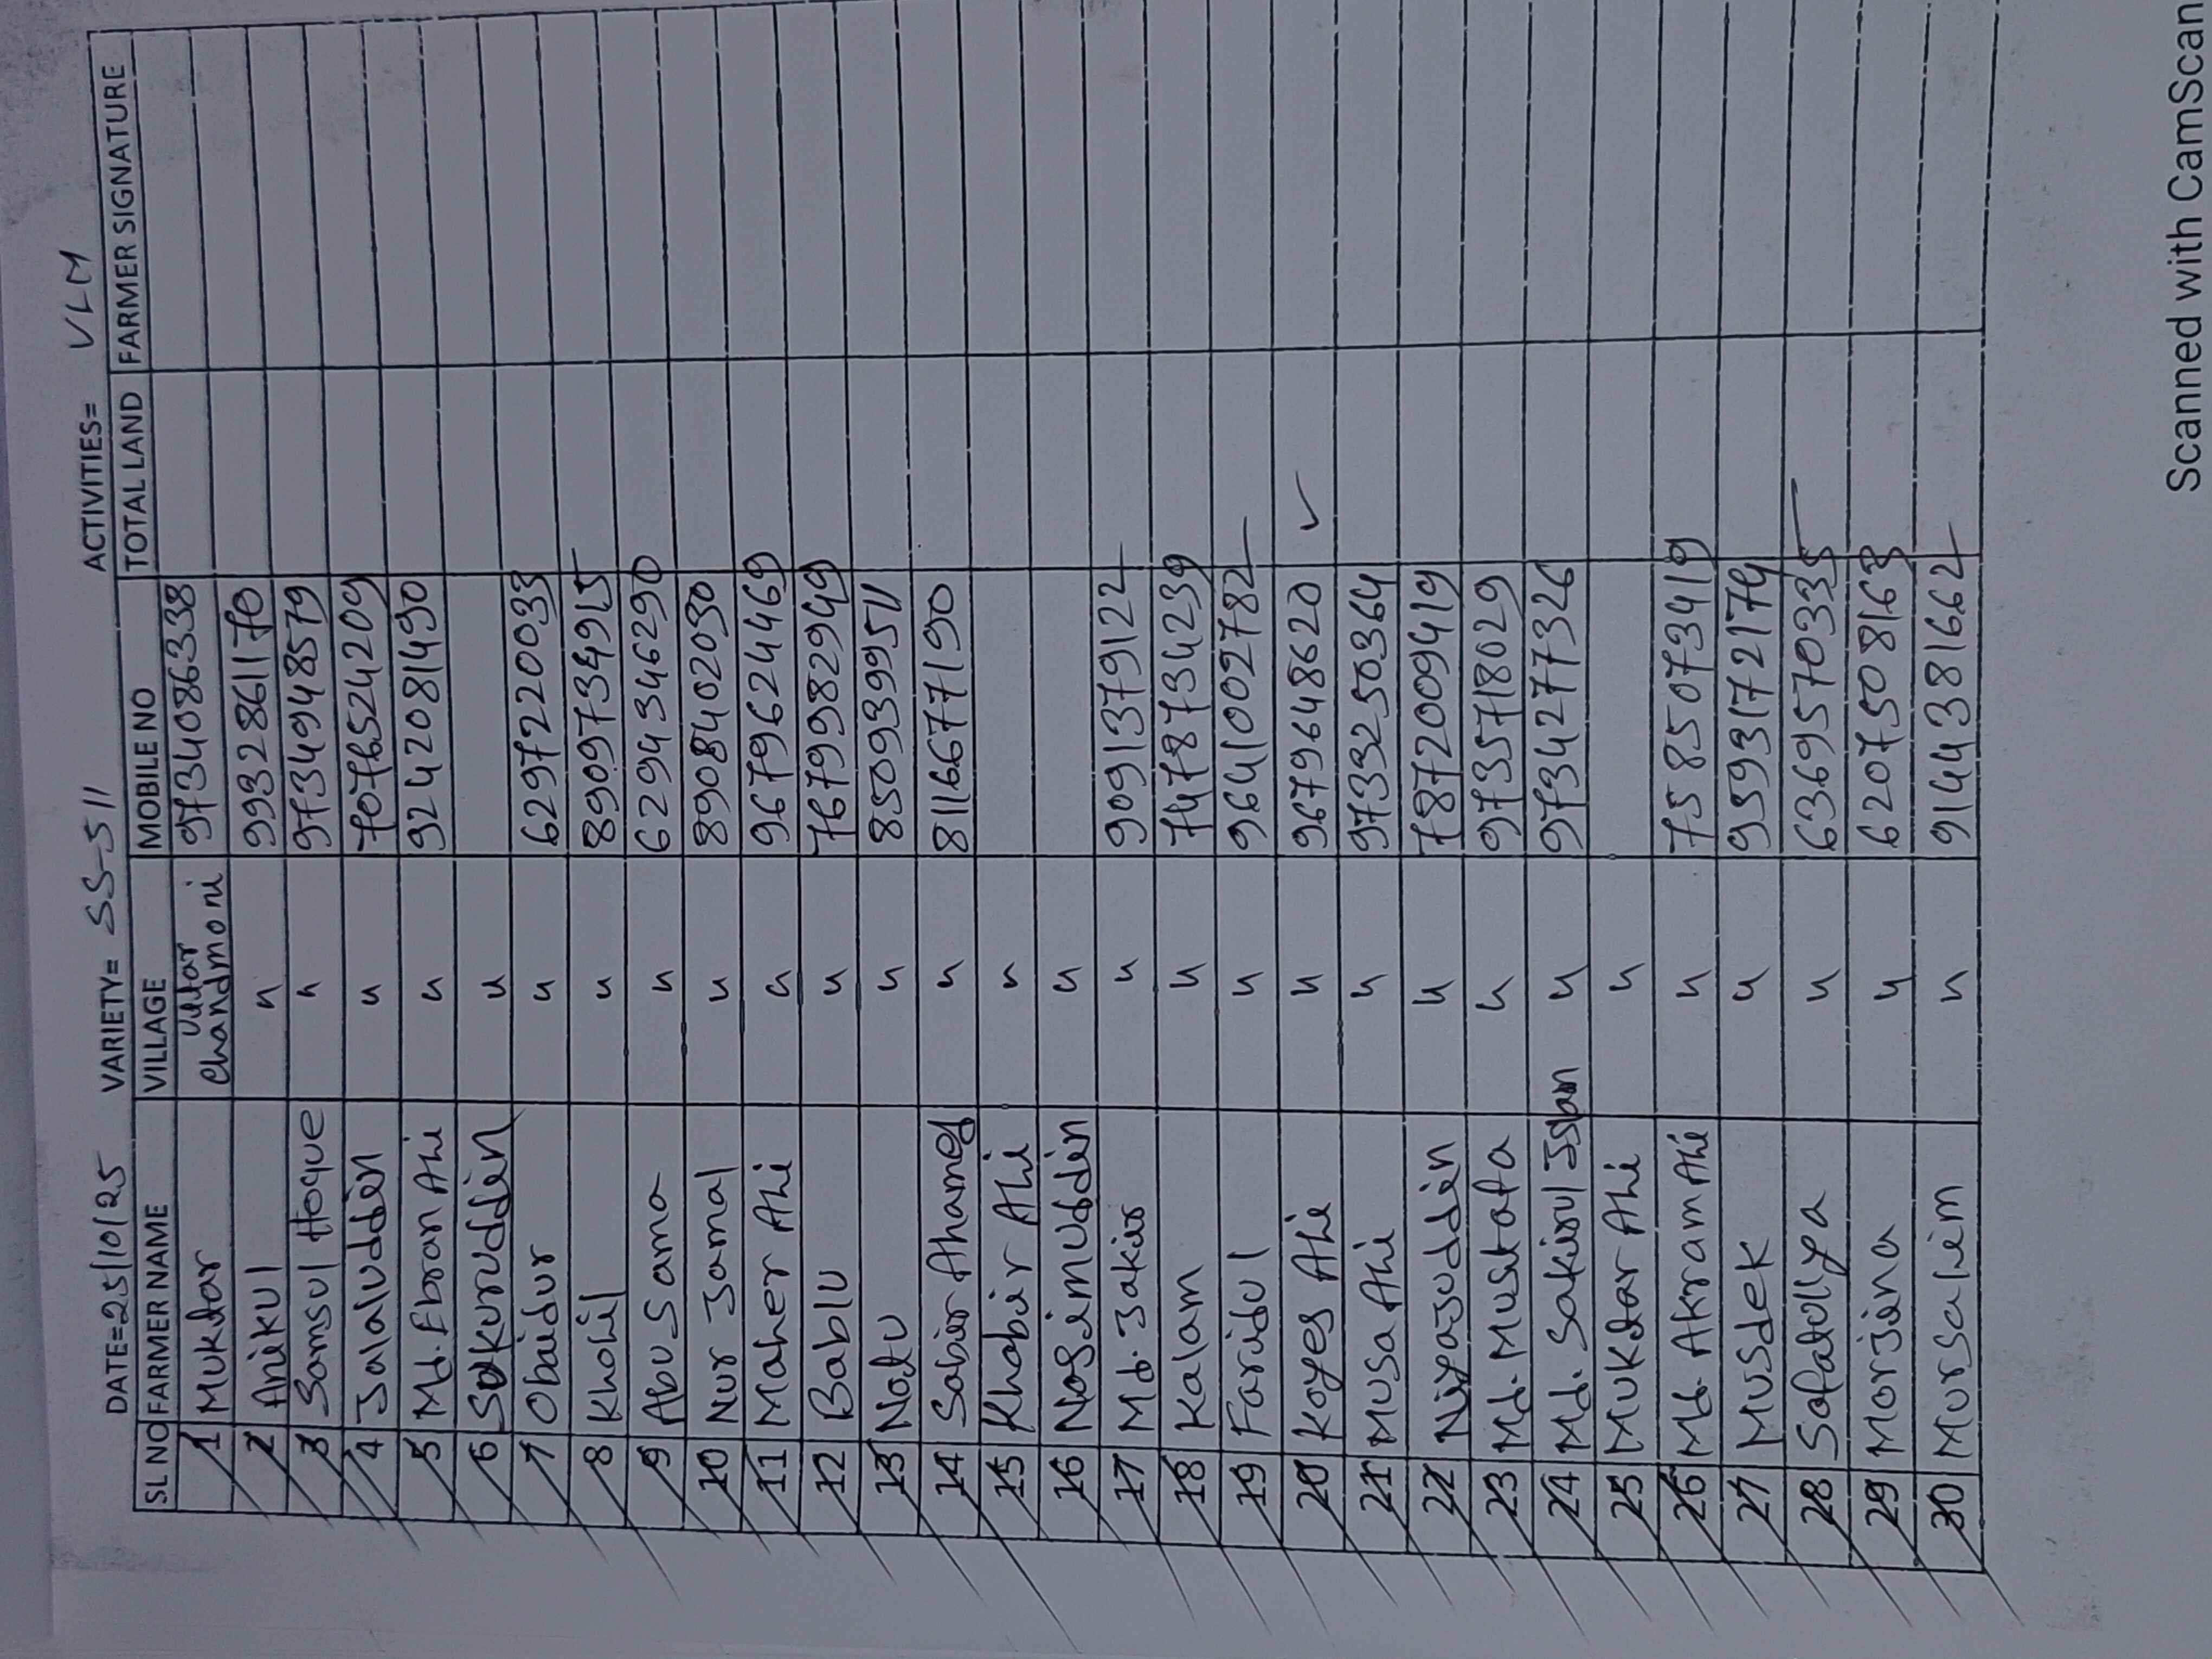 DATE=25/10/25 VARIETY= SS-511 ACTIVITIES= VLM
SL NO FARMER NAME VILLAGE MOBILE NO TOTAL LAND FARMER SIGNATURE
1 Mukdar Uttar Chandmoni 9734086338
2 Anikul " 9932861170
3 Samsul Hoque " 9734948579
4 Jalaluddin " 7076524209
5 Md. Ebran Ali " 9242081490
6 Sukuruddin "
7 Obaidur " 6297220093
8 Kholil " 8909734915
9 Abu Sama " 6294346290
10 Nur Jamal " 8908402030
11 Maher Ali " 9679624469
12 Bablu " 7679982949
13 Nadu " 8509399511
14 Sabir Ahamed " 8116677190
15 Khabir Ali "
16 Nasimuddin "
17 Md. Jakir " 9091379122
18 Kalam " 7478734239
19 Faridul " 9641002782
20 Koyes Ali " 9679648620 ✓
21 Musa Ali " 9733250364
22 Niyajuddin " 7872009419
23 Md. Mustafa " 9735718029
24 Md. Sakirul Islam " 9734277326
25 Mukdar Ali "
26 Md. Akram Ali " 7585073419
27 Musdek " 9593172174
28 Safatullya " 6369570335
29 Morjina " 6207508163
30 Mursalim " 9144381662
Scanned with CamScan